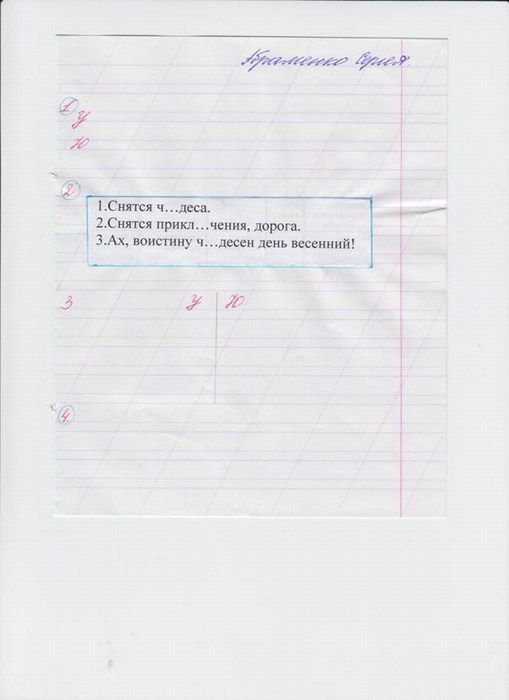 1
У
Ю
2.
1.Снятся ч…деса.
2.Снятся прикл…чения, дорога.
3.Ах, воистину ч…десен день весенний!
3 У Ю
4.